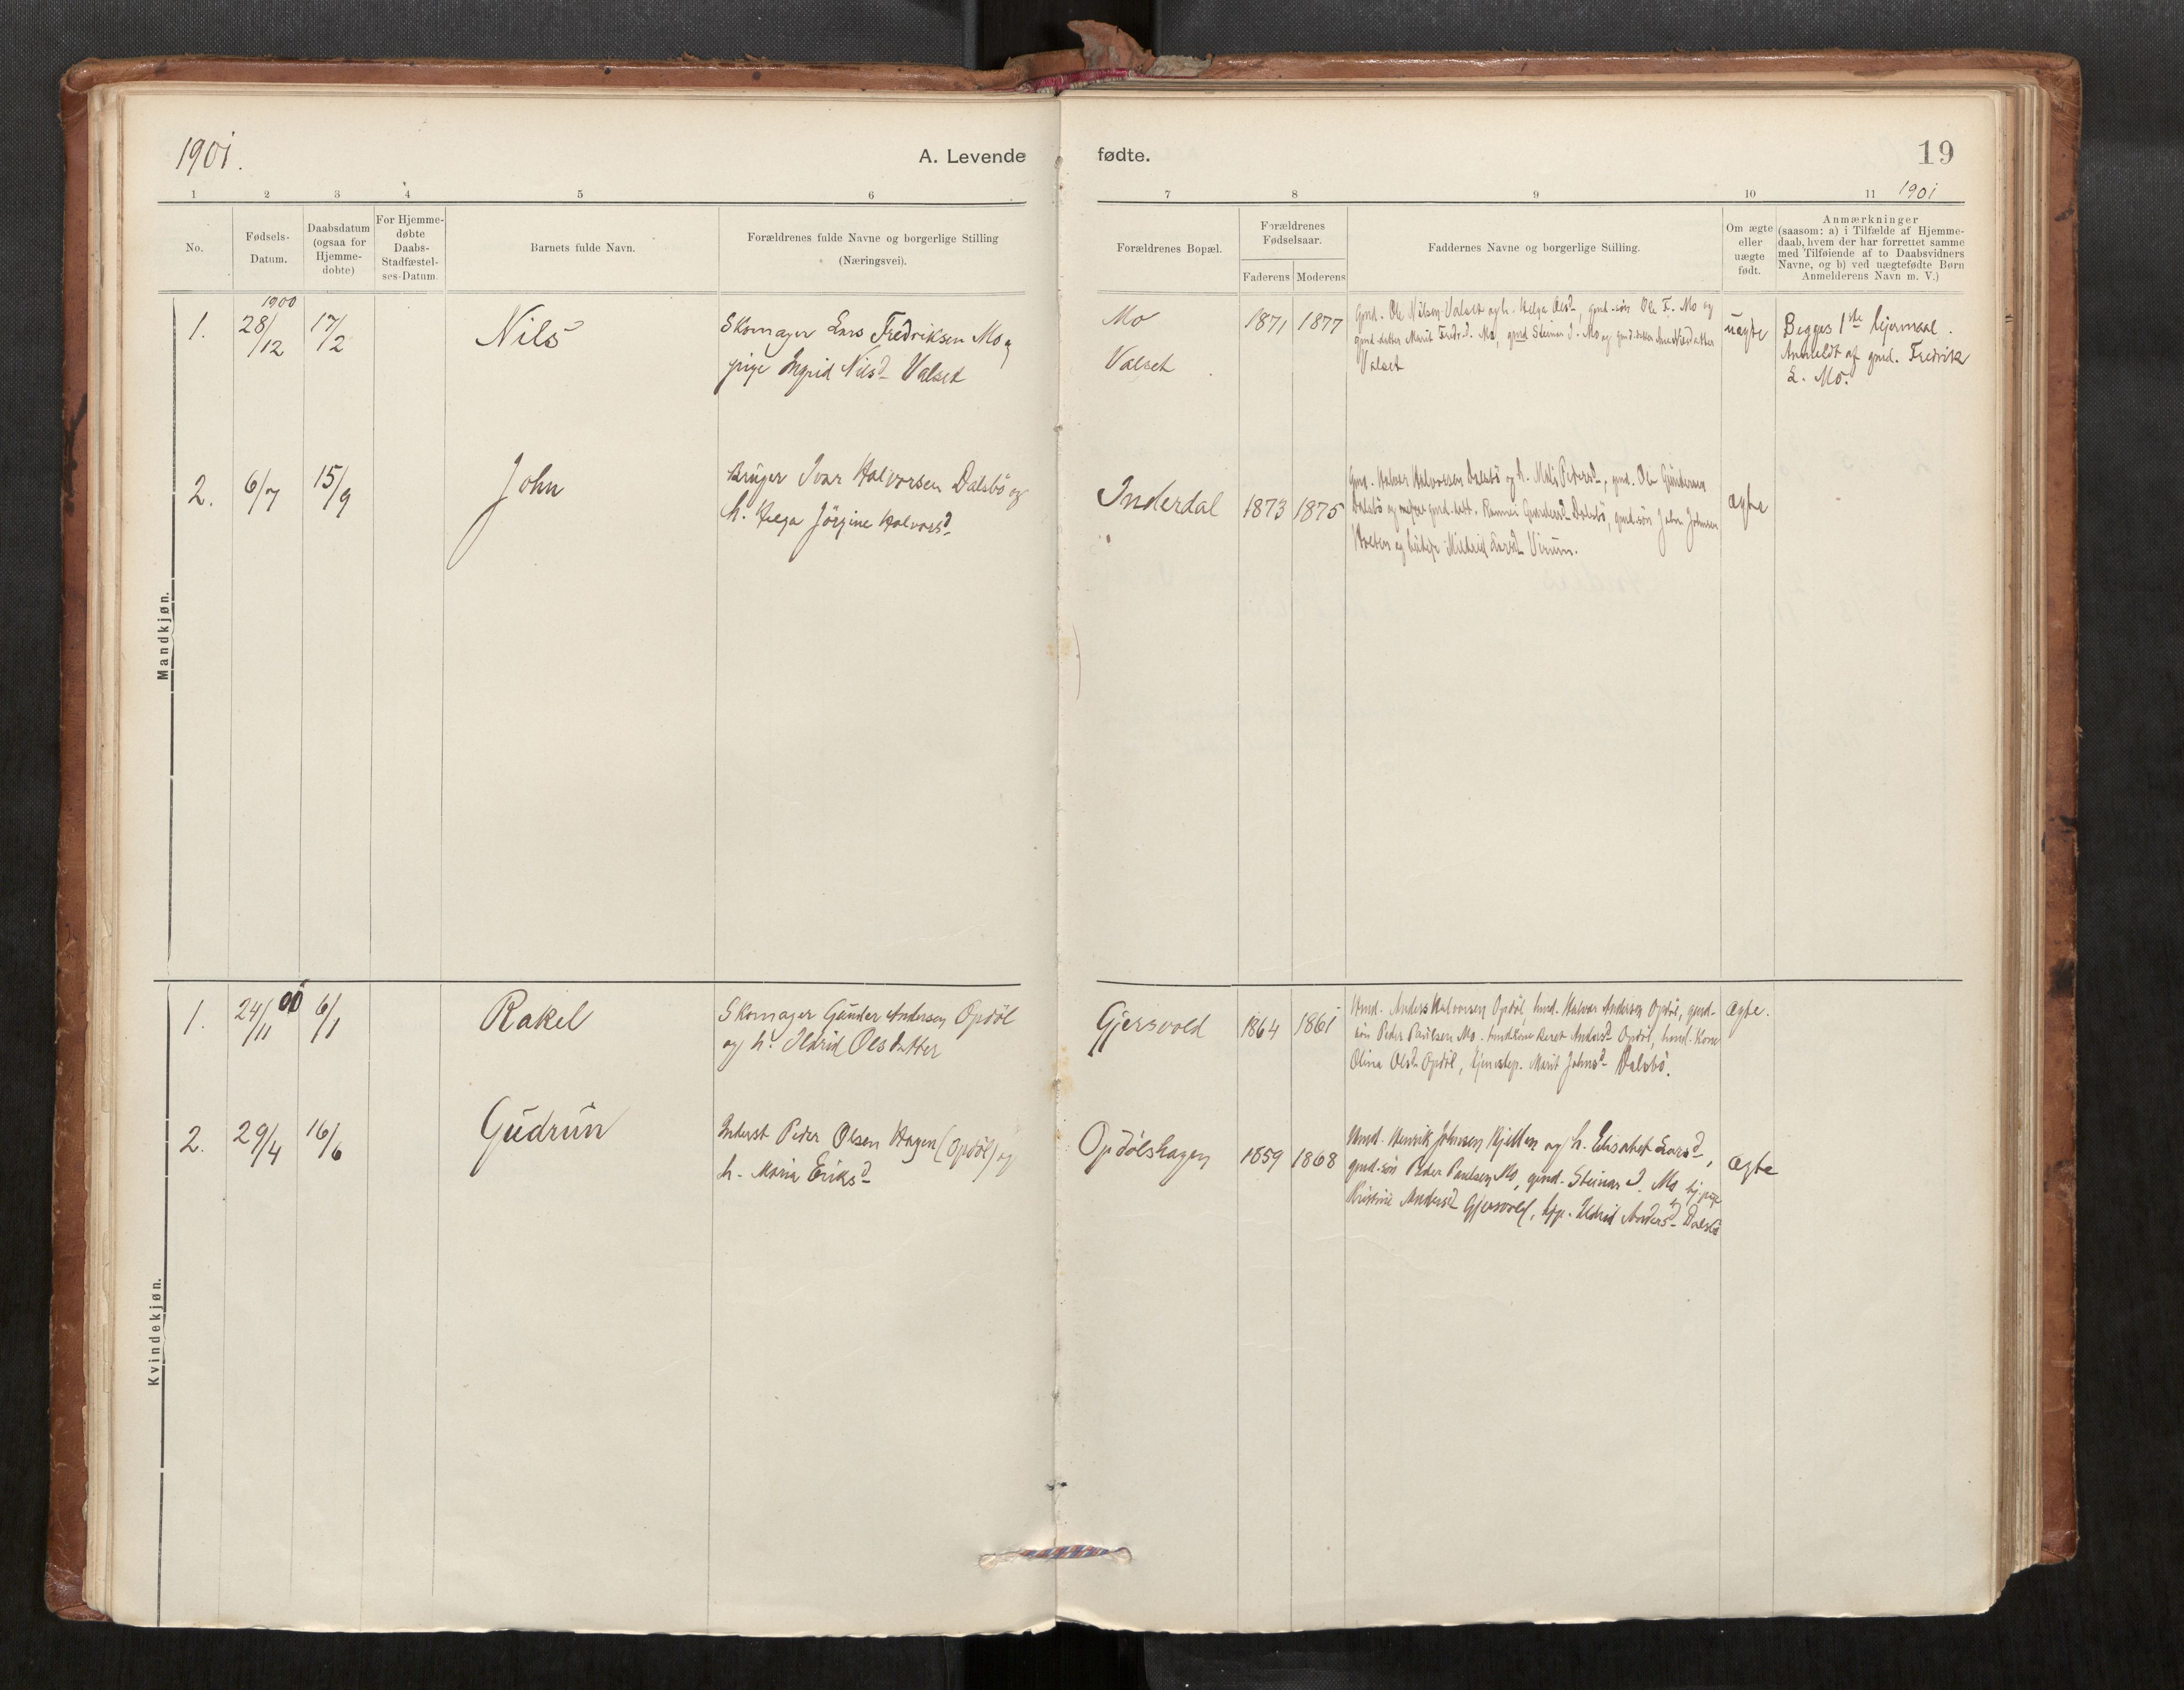 1901.
A. Levende
fødte.
19
1 2 3 4 5 6
7 8 9 10 11 1901
No.
Fødsels-
Datum.
Daabsdatum
(ogsaa for
Hjemme-
døbte)
For Hjemme-
døbte
Daabs-
Stadfæstel-
ses-Datum.
Barnets fulde Navn.
Forældrenes fulde Navne og borgerlige Stilling
(Næringsvei).
Forældrenes Bopæl.
Forældrenes
Fødselsaar.
Faderens Moderens
Faddernes Navne og borgerlige Stilling.
Om ægte
eller
uægte
født.
Anmærkninger
(saasom: a) i Tilfælde af Hjemme-
daab, hvem der har forrettet samme
med Tilføiende af to Daabsvidners
Navne, og b) ved uægtefødte Børn
Anmelderens Navn m. V.)
Mandkjøn.
1.
1900
28/12
17/2
Nils
Skomager Lars Fredriksen Mo og
pige Ingrid Nilsd Valset
Mo
Valset
1871 1877
Gmd. Ole Nilsen Valset og h. Helga Olsd, gmd.søn Ole F. Mo og
gmd.datter Marit Fredr.d. Mo, gmd Steinar J. Mo og gmd.datter Ane Nilsdatter
Valset
uægte
Begges 1ste leiermaal.
Anmeldt af gmd. Fredrik
L. Mo.
2.
6/7
15/9
John
Bruger Ivar Halvorsen Dalsbö og
h. Helga Jörgine Halvorsd
Inderdal
1873 1875
Gmd. Halvor Halvorsen Dalsbö og h. Mali Pedersd, gmd. Ole Gundersen
Dalsbö og gmd.datt. Gundersd Dalsbö, gmd.søn John Johnsen
Mildrid Larsd Virum.
ægte
Kvindekjøn.
1.
24/11 00
6/1
Rakel
Skomager Gunder Andersen Opdöl
og h. Ildrid Olsdatter
Gjersvold
1864 1861
Hmd. Anders Halvorsen Opdöl, hmd. Halvor Andersen Opdöl, gmd-
søn Peder Paulsen Mo. hmdkone Beret Andersd Opdöl, hmd. kone
Olina Olsd Opdöl, tjenestep. Marit Johnsd Dalsbö.
ægte.
2.
29/4
16/6
Gudrun
Inderst Peder Olsen Hagen (Opdöl) og
h. Maria Eriksd
Opdölshagen
1859 1868
Hmd. Henrik Johnsen Kjelten og h. Elisabet Larsd,
gmd.søn Peder Paulsen Mo, gmd. Steinar J. Mo, tj.pige
Kristine Andersd Gjersvold, tjp. Ildrid Andersd Dalsbö
ægte